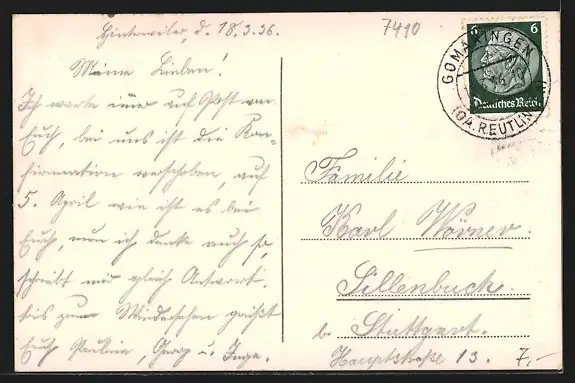 Hinterweiler, d. 18.3.36.
Meine Lieben!
Ich warte immer auf Post von
Euch, bei uns ist die Kon-
firmation verschoben, auf
5. April wie ist es bei
Euch, nun ich denke auch so,
schreibt mir gleich Antwort,
bis zum Wiedersehen grüßt
Euch Pauline, Georg u.
7490
6 6
Deutsches Reich
GOMARINGEN
(OA. REUTLIN
Familie
Karl Wörner
Sillenbuch.
b. Stuttgart.
Hauptstraße 13.
7,-